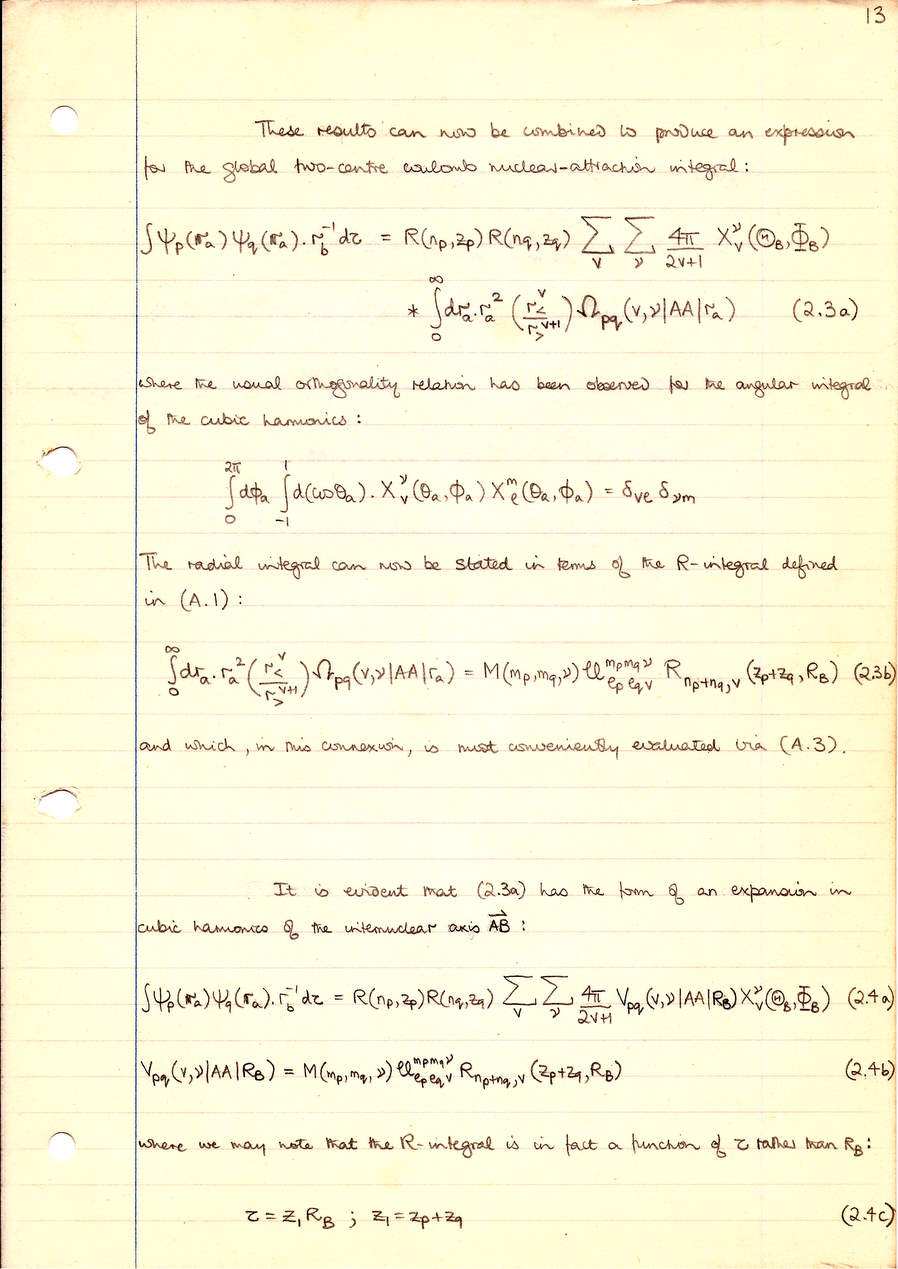 13
These results can now be combined to produce an expression
for the global two-centre coulomb nuclear-attraction integral :
∫ψ_p(𝐫_a) ψ_q(𝐫_a) . r_b^{-1} dτ = R(n_p,z_p) R(n_q,z_q) ∑_v ∑_ν 4π/(2v+1) X_v^ν(Θ_B,Φ_B)
* ∫_0^∞ dr_a . r_a^2 (r_<^v / r_>^{v+1}) Ω_{pq}(v,ν|AA|r_a) (2.3a)
where the usual orthogonality relation has been observed for the angular integral
of the cubic harmonics :
∫_0^{2π} dφ_a ∫_{-1}^{1} d(cosθ_a) . X_v^ν(θ_a,φ_a) X_ℓ^m(θ_a,φ_a) = δ_{vℓ} δ_{νm}
The radial integral can now be stated in terms of the R-integral defined
in (A.1) :
∫_0^∞ dr_a . r_a^2 (r_<^v / r_>^{v+1}) Ω_{pq}(v,ν|AA|r_a) = M(m_p,m_q,ν) 𝒰_{ℓ_p ℓ_q v}^{m_p m_q ν} R_{n_p+n_q,v}(z_p+z_q,R_B) (2.3b)
and which, in this connexion, is most conveniently evaluated via (A.3).
It is evident that (2.3a) has the form of an expansion in
cubic harmonics of the internuclear axis \overrightarrow{AB} :
∫ψ_p(𝐫_a) ψ_q(𝐫_a) . r_b^{-1} dτ = R(n_p,z_p) R(n_q,z_q) ∑_v ∑_ν 4π/(2v+1) V_{pq}(v,ν|AA|R_B) X_v^ν(Θ_B,Φ_B) (2.4a)
V_{pq}(v,ν|AA|R_B) = M(m_p,m_q,ν) 𝒰_{ℓ_p ℓ_q v}^{m_p m_q ν} R_{n_p+n_q,v}(z_p+z_q,R_B) (2.4b)
where we may note that the R-integral is in fact a function of τ rather than R_B :
τ = z_1 R_B ; z_1 = z_p+z_q (2.4c)